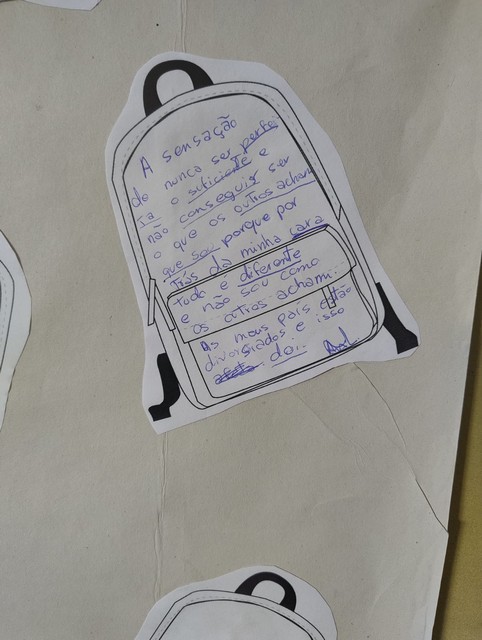 A sensação
de nunca ser perfei
ta o suficiente e
não conseguir ser
o que os outros acham
que sou porque por
trás da minha cara
tudo é diferente
e não sou como
os outros acham.
os meus pais estão
divorsiados e isso
doi.